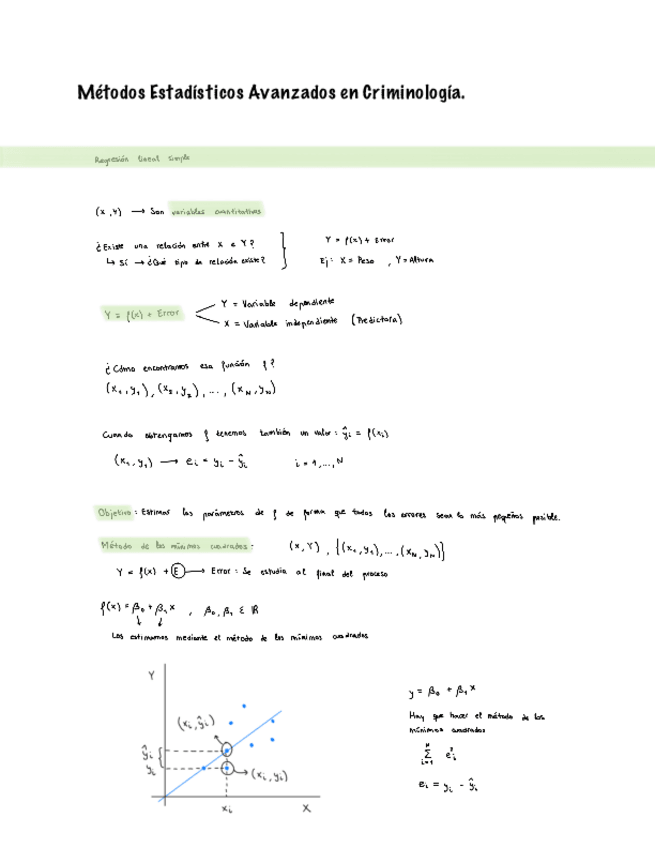 Métodos Estadísticos Avanzados en Criminología.
Regresión lineal simple
(x, y) → Son variables cuantitativas
¿Existe una relación entre X e Y?
↳ Sí → ¿Qué tipo de relación existe?
Y = f(x) + Error
Ej: X = Peso , Y = Altura
Y = f(x) + Error
Y = Variable dependiente
X = Variable independiente (Predictora)
¿Cómo encontramos esa función f?
(x₁, y₁), (x₂, y₂), ..., (x_N, y_N)
Cuando obtengamos f tenemos también un valor: ŷᵢ = f(xᵢ)
(x₁, y₁) → eᵢ = yᵢ - ŷᵢ i = 1, ..., N
Objetivo: Estimar los parámetros de f de forma que todos los errores sean lo más pequeños posible.
Método de los mínimos cuadrados: (x, Y), {(x₁, y₁), ..., (x_N, y_N)}
Y = f(x) + E → Error: Se estudia al final del proceso
f(x) = β₀ + β₁x , β₀, β₁ ∈ ℝ
Los estimamos mediante el método de los mínimos cuadrados
Y
(xᵢ, ŷᵢ)
ŷᵢ
yᵢ
(xᵢ, yᵢ)
xᵢ
X
y = β₀ + β₁x
Hay que hacer el método de los
mínimos cuadrados
∑ᵢ₌₁ᴺ eᵢ²
eᵢ = yᵢ - ŷᵢ